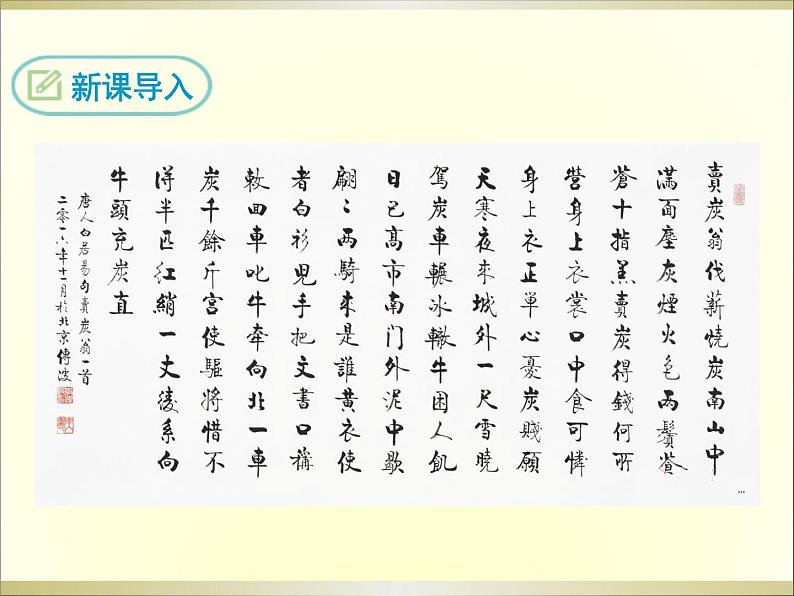 新课导入
賣炭翁伐薪燒炭南山中
滿面塵灰煙火色兩鬢蒼
蒼十指黑賣炭得錢何所
營身上衣裳口中食可憐
身上衣正單心憂炭賤願
天寒夜來城外一尺雪曉
駕炭車輾冰轍牛困人飢
日已高市南门外泥中歇
翩〻兩騎來是誰黃衣使
者白衫兒手把文書口稱
敕回車叱牛牽向北一車
炭千餘斤宮使驅將惜不
得半匹紅綃一丈綾系向
牛頭充炭直
唐人白居易句賣炭翁一首
二零一六年十一月於北京傳波